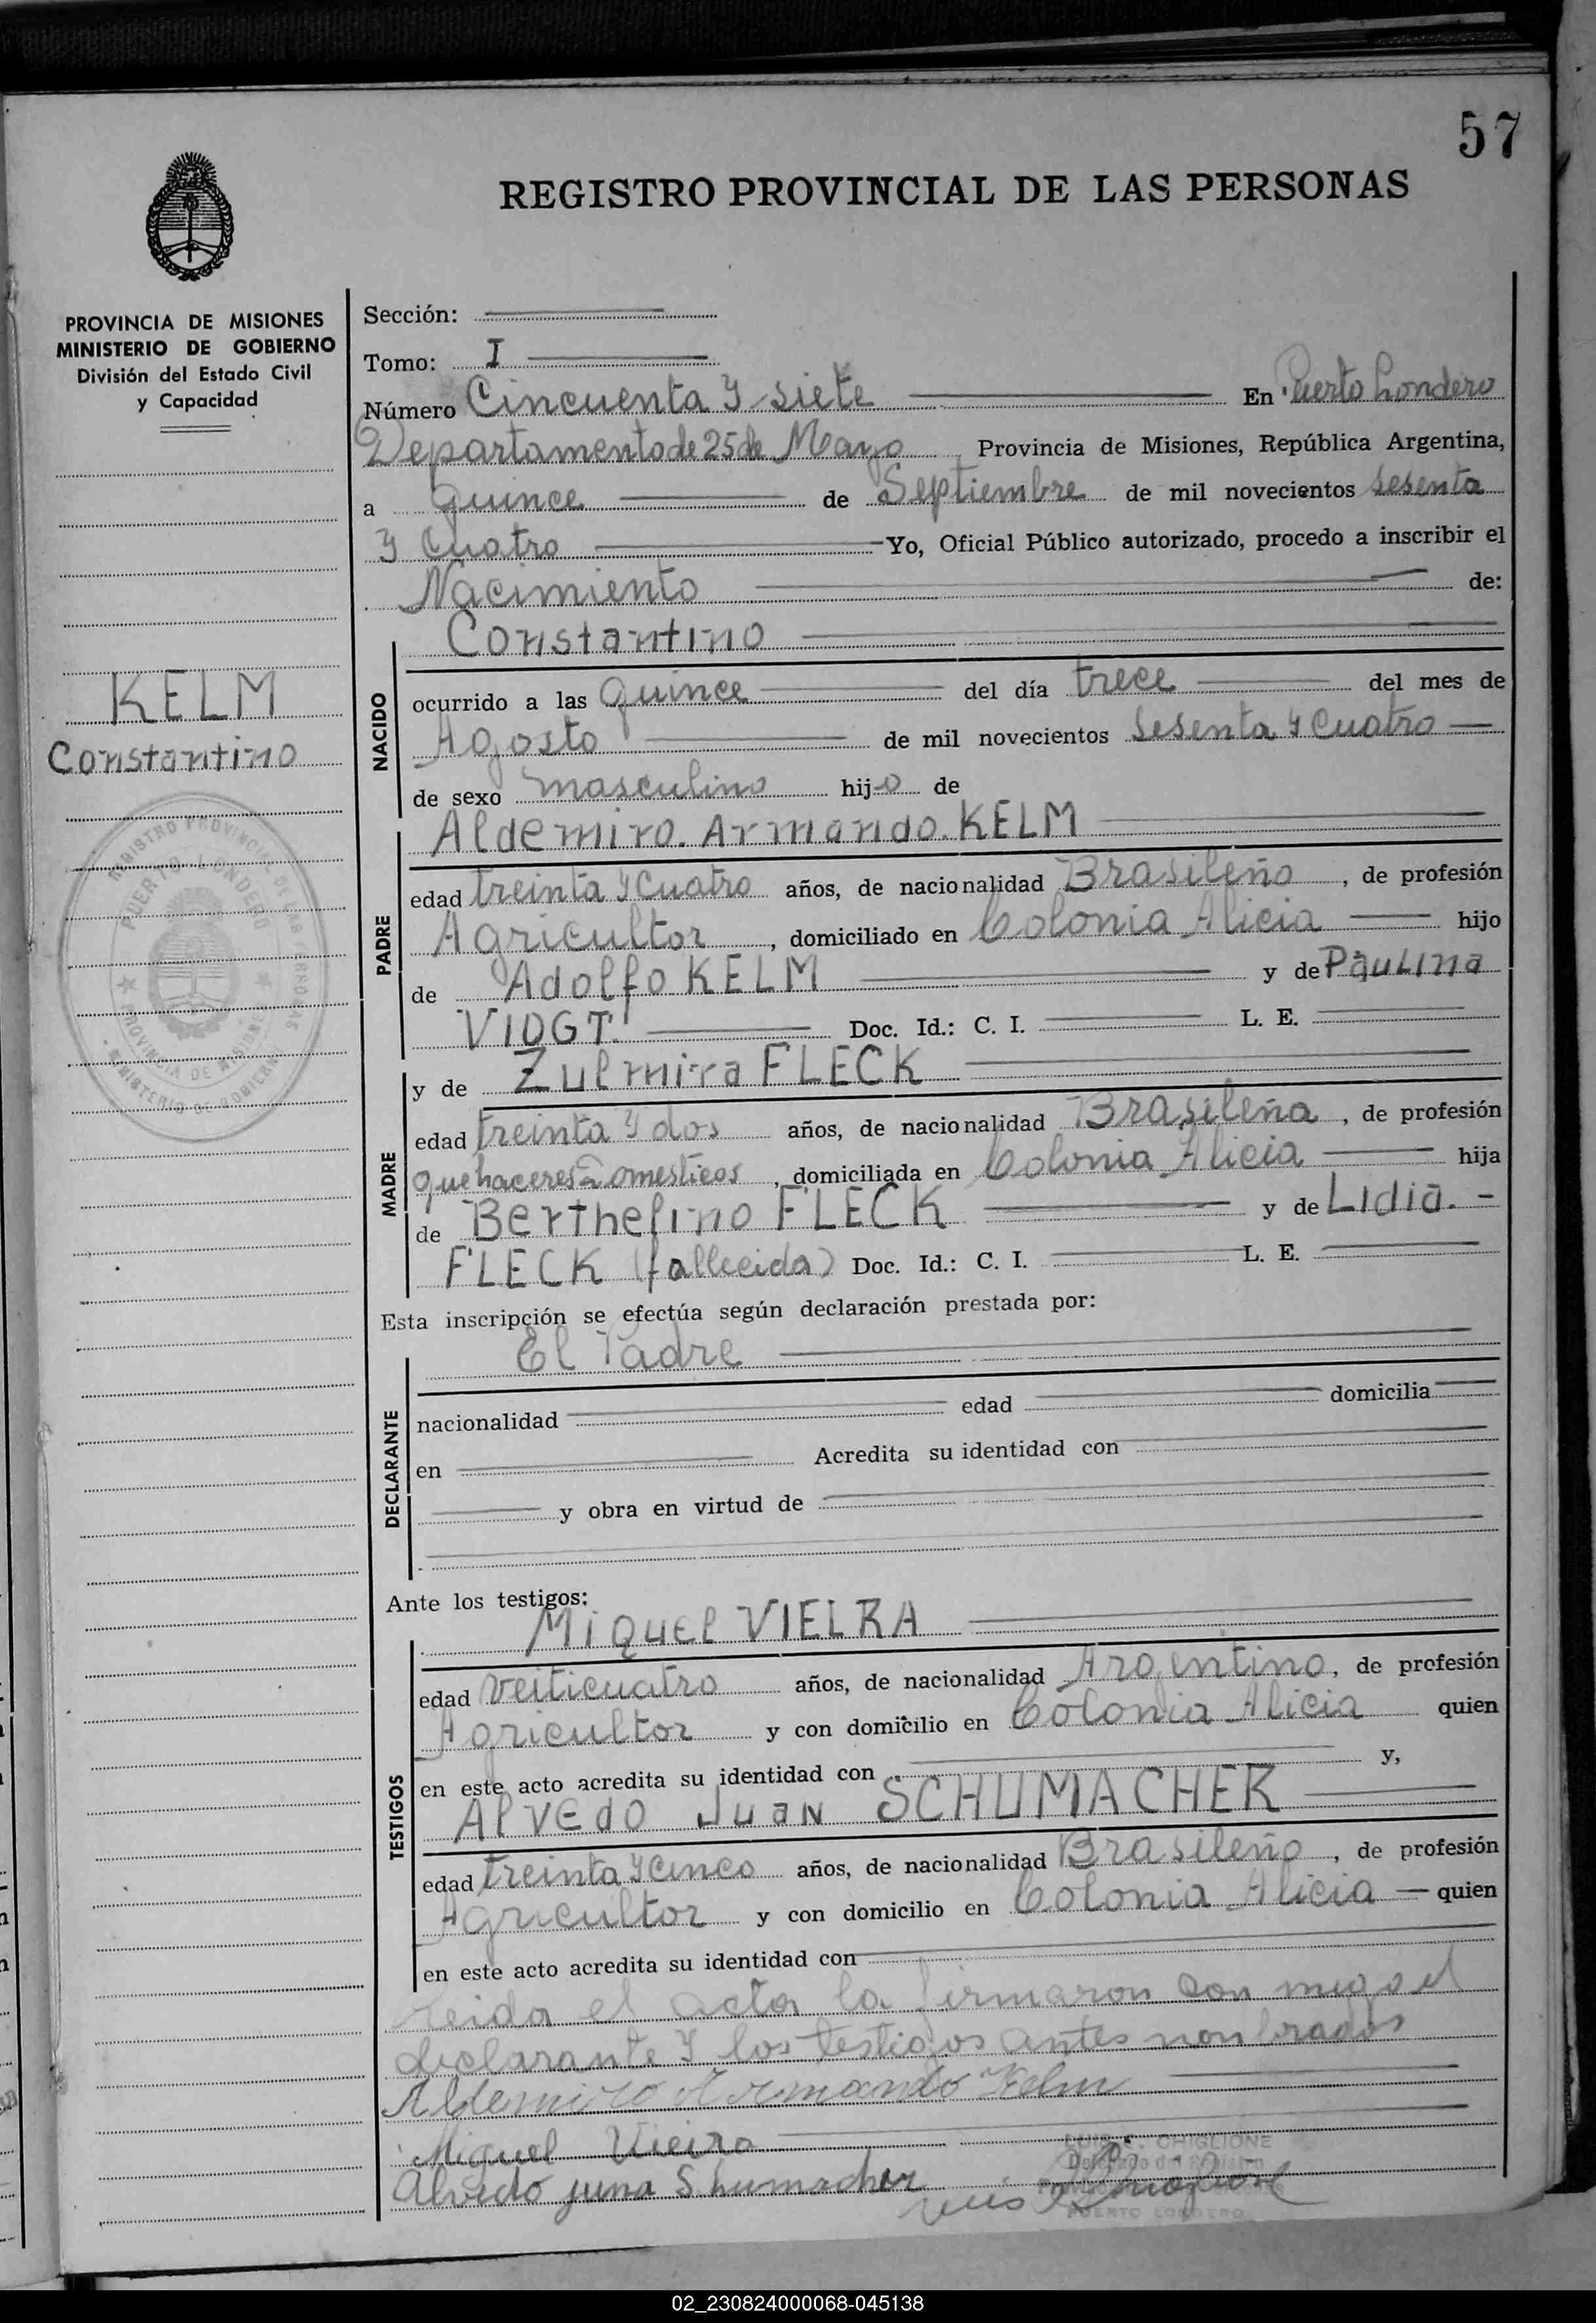 57
REGISTRO PROVINCIAL DE LAS PERSONAS
PROVINCIA DE MISIONES
MINISTERIO DE GOBIERNO
División del Estado Civil
y Capacidad
KELM
Constantino
REGISTRO PROVINCIAL DE LAS PERSONAS
PUERTO LONDERO
PROVINCIA DE MISIONES
MINISTERIO DE GOBIERNO
Sección:
Tomo: I
Número Cincuenta y siete En Puerto Londero
Departamento de 25 de Mayo Provincia de Misiones, República Argentina,
a quince de Septiembre de mil novecientos sesenta
y Cuatro Yo, Oficial Público autorizado, procedo a inscribir el
Nacimiento de:
Constantino
NACIDO
ocurrido a las quince del día trece del mes de
Agosto de mil novecientos sesenta y cuatro
de sexo masculino hijo de
PADRE
Aldemiro. Armando. KELM
edad treinta y cuatro años, de nacionalidad Brasileño, de profesión
Agricultor, domiciliado en Colonia Alicia hijo
de Adolfo KELM y de Paulina
VIOGT. Doc. Id.: C. I. L. E.
MADRE
y de Zulmira FLECK
edad treinta y dos años, de nacionalidad Brasileña, de profesión
quehaceres Domesticos, domiciliada en Colonia Alicia hija
de Berthelino FLECK y de Lidia. -
FLECK (fallecida) Doc. Id.: C. I. L. E.
Esta inscripción se efectúa según declaración prestada por:
El Padre
DECLARANTE
nacionalidad edad domicilia
en Acredita su identidad con
y obra en virtud de
Ante los testigos:
TESTIGOS
Miquel VIELRA
edad veiticuatro años, de nacionalidad Argentino, de profesión
Agricultor y con domicilio en Colonia Alicia quien
en este acto acredita su identidad con y,
Alvedo Juan SCHUMACHER
edad treinta y cinco años, de nacionalidad Brasileño, de profesión
Agricultor y con domicilio en Colonia Alicia quien
en este acto acredita su identidad con
Leida el acta la firmaron con migo el
declarante y los testigos antes nonbrados
Aldemiro Armando Kelm
Miguel Vieira
Alvedo juna Shumacher
LUIS E. CHIGLIONE
PUERTO LONDERO
02_230824000068-045138